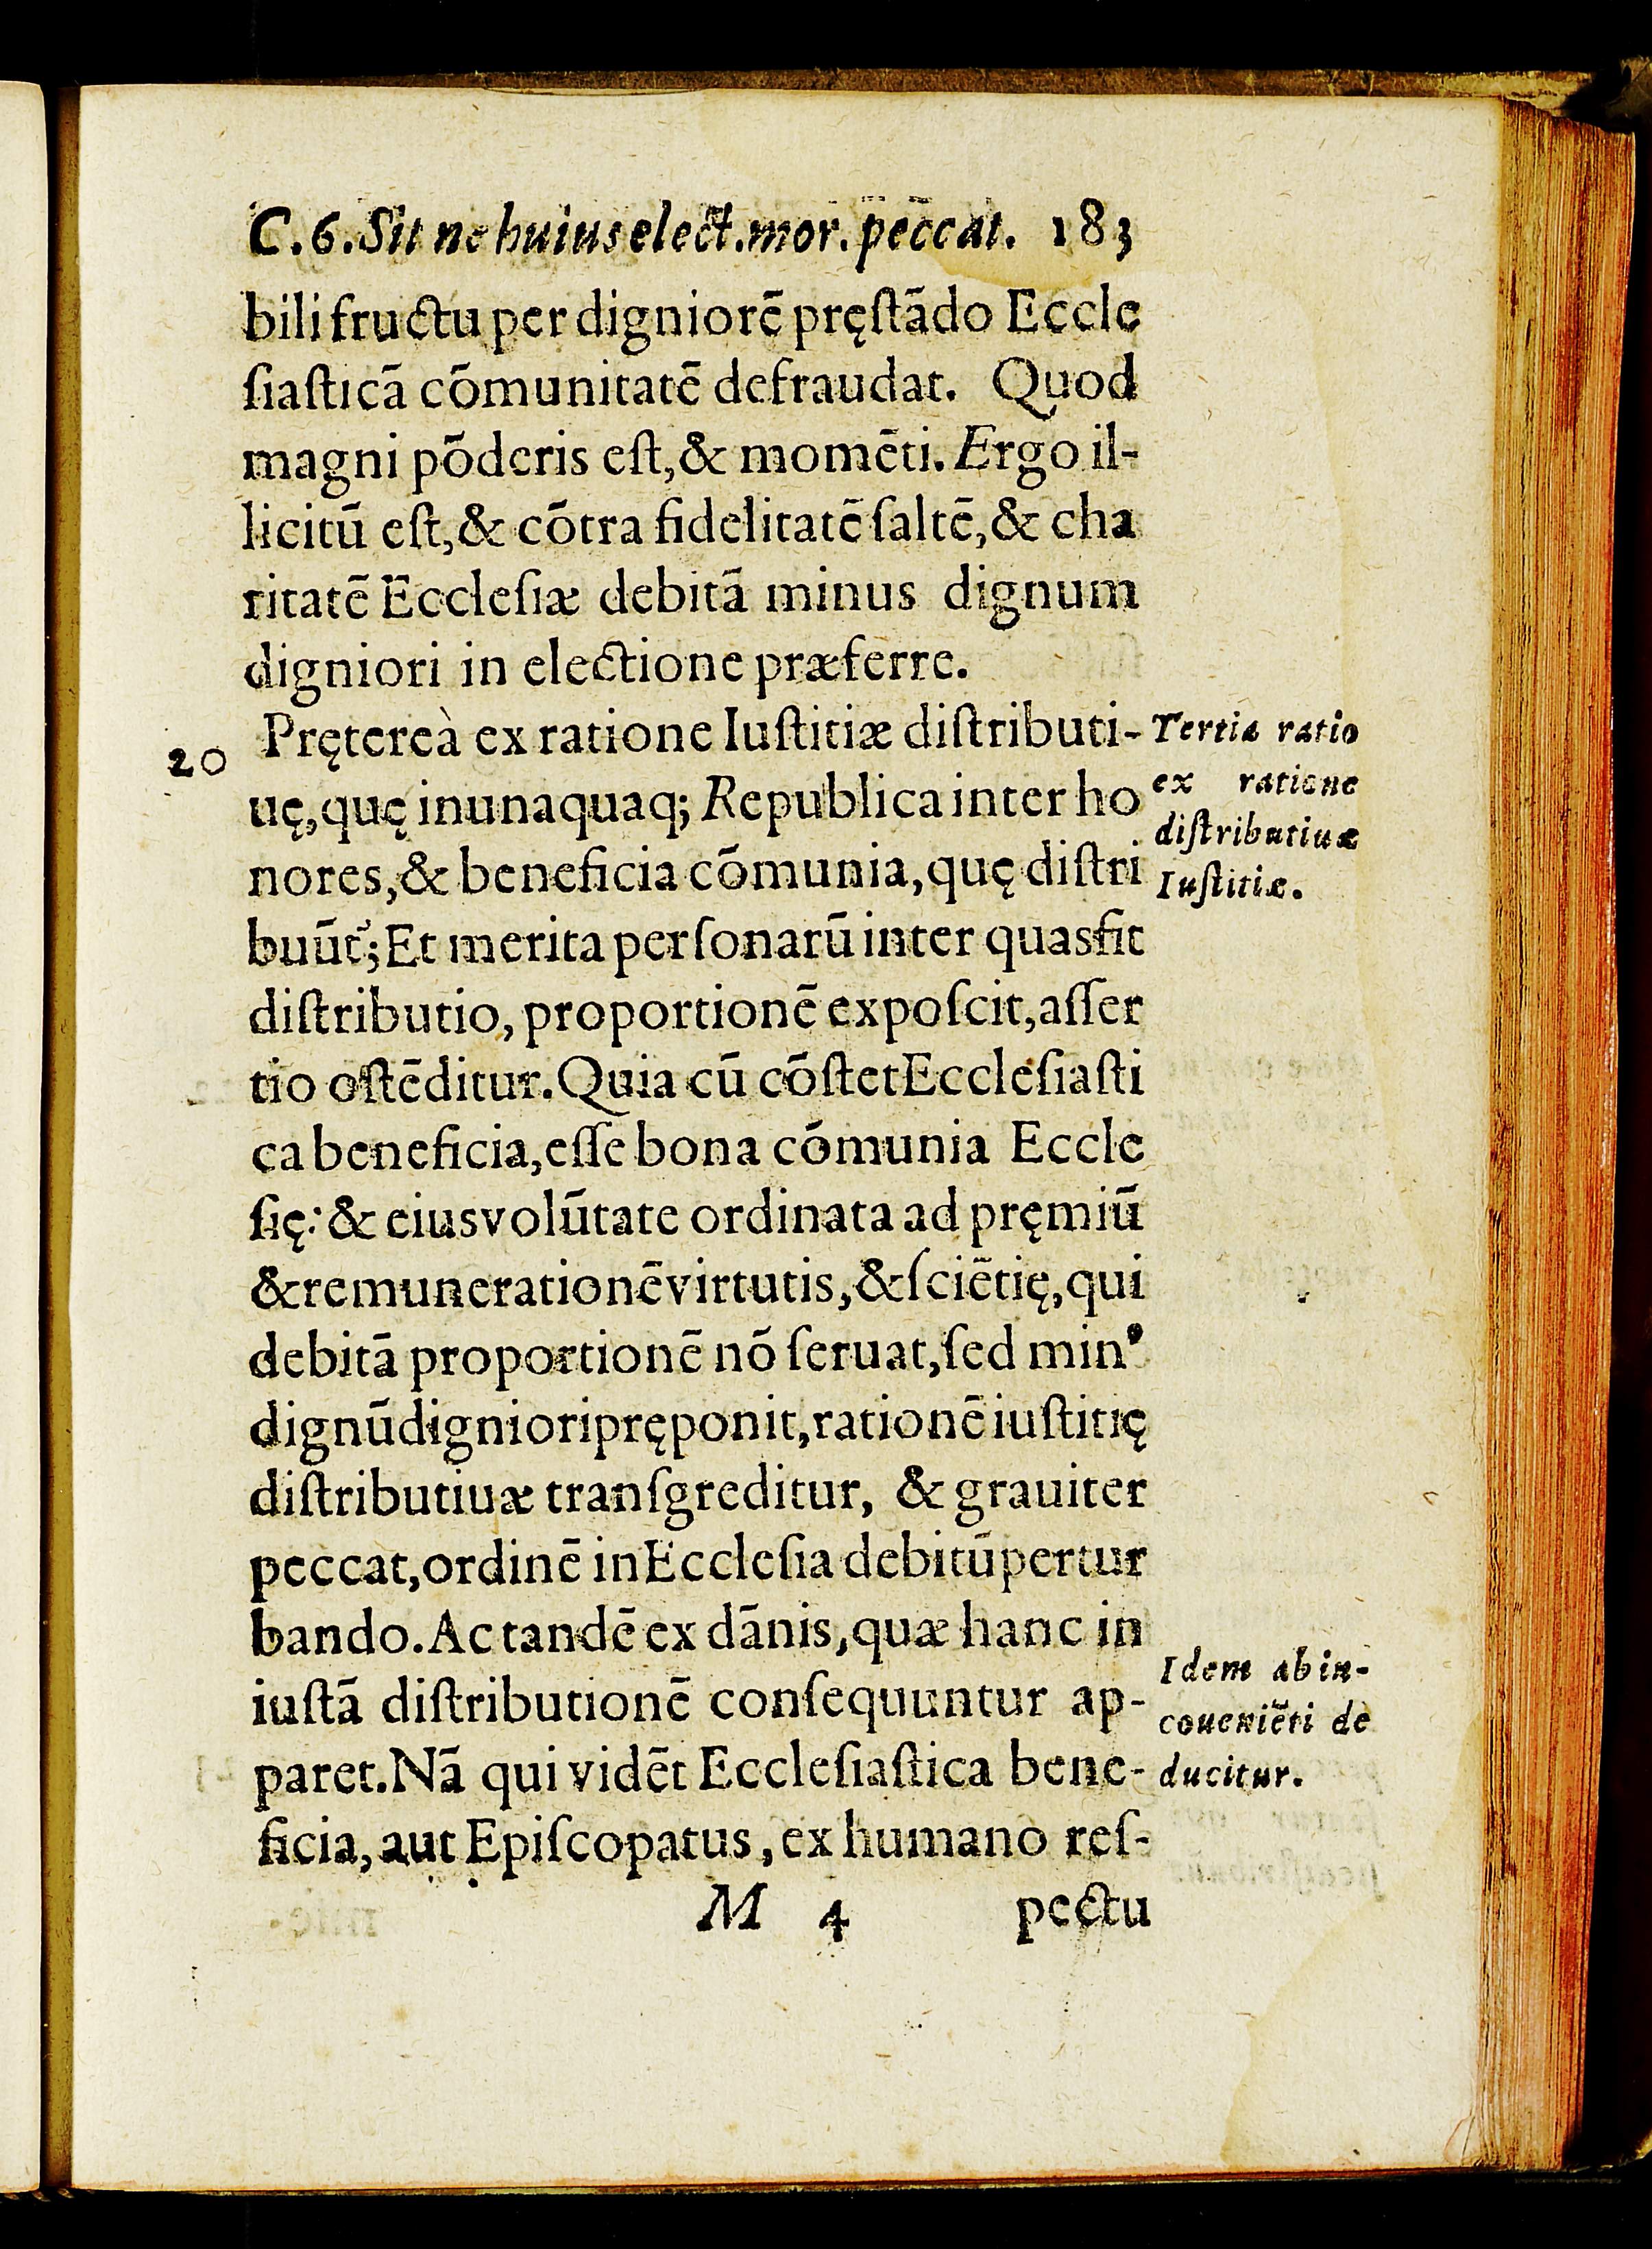 C.6. Sit ne huius elect. mor. peccat. 183
bili fructu per digniorē pręſtãdo Eccle
ſiaſticã cõmunitatē defraudat. Quod
magni põderis eſt, & momēti. Ergo il-
licitũ eſt, & cõtra fidelitatē ſaltē, & cha
ritatē Eccleſiæ debitã minus dignum
digniori in electione præferre.
20 Pręterea̓ ex ratione Iuſtitiæ diſtributi-
uę, quę in unaquaq; Republica inter ho
nores, & beneficia cõmunia, quę diſtri
buũt᷑; Et merita perſonarũ inter quas fit
diſtributio, proportionē expoſcit, aſſer
tio oſtēditur. Quia cũ cõſtet Eccleſiaſti
ca beneficia, eſſe bona cõmunia Eccle
ſię: & eius volũtate ordinata ad pręmiũ
& remunerationē virtutis, & ſciētię, qui
debitã proportionē nõ ſeruat, ſed minꝰ
dignũ digniori pręponit, rationē iuſtitię
diſtributiuæ tranſgreditur, & grauiter
peccat, ordinē in Eccleſia debitũ pertur
bando. Ac tandē ex dãnis, quæ hanc in
iuſtã diſtributionē conſequuntur ap-
paret. Nã qui vidēt Eccleſiaſtica bene-
ficia, aut Epiſcopatus, ex humano reſ-
M 4 pectu
Tertia ratio
ex ratione
diſtributiuæ
Iuſtitiæ.
Idem ab in-
coueniēti de
ducitur.